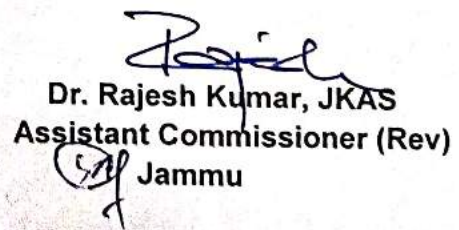 Dr. Rajesh Kumar, JKAS
Assistant Commissioner (Rev)
Jammu